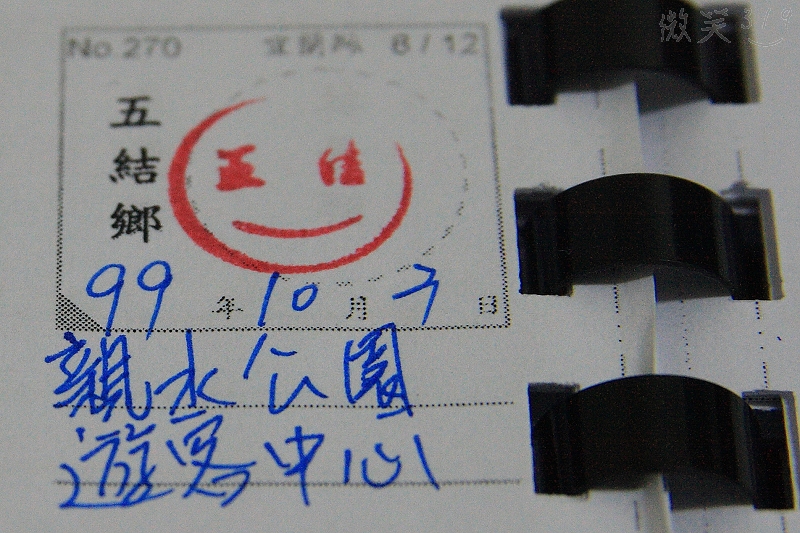 No.270 宜蘭縣 8/12
五結鄉
99年10月3日
親水公園
遊客中心
微笑